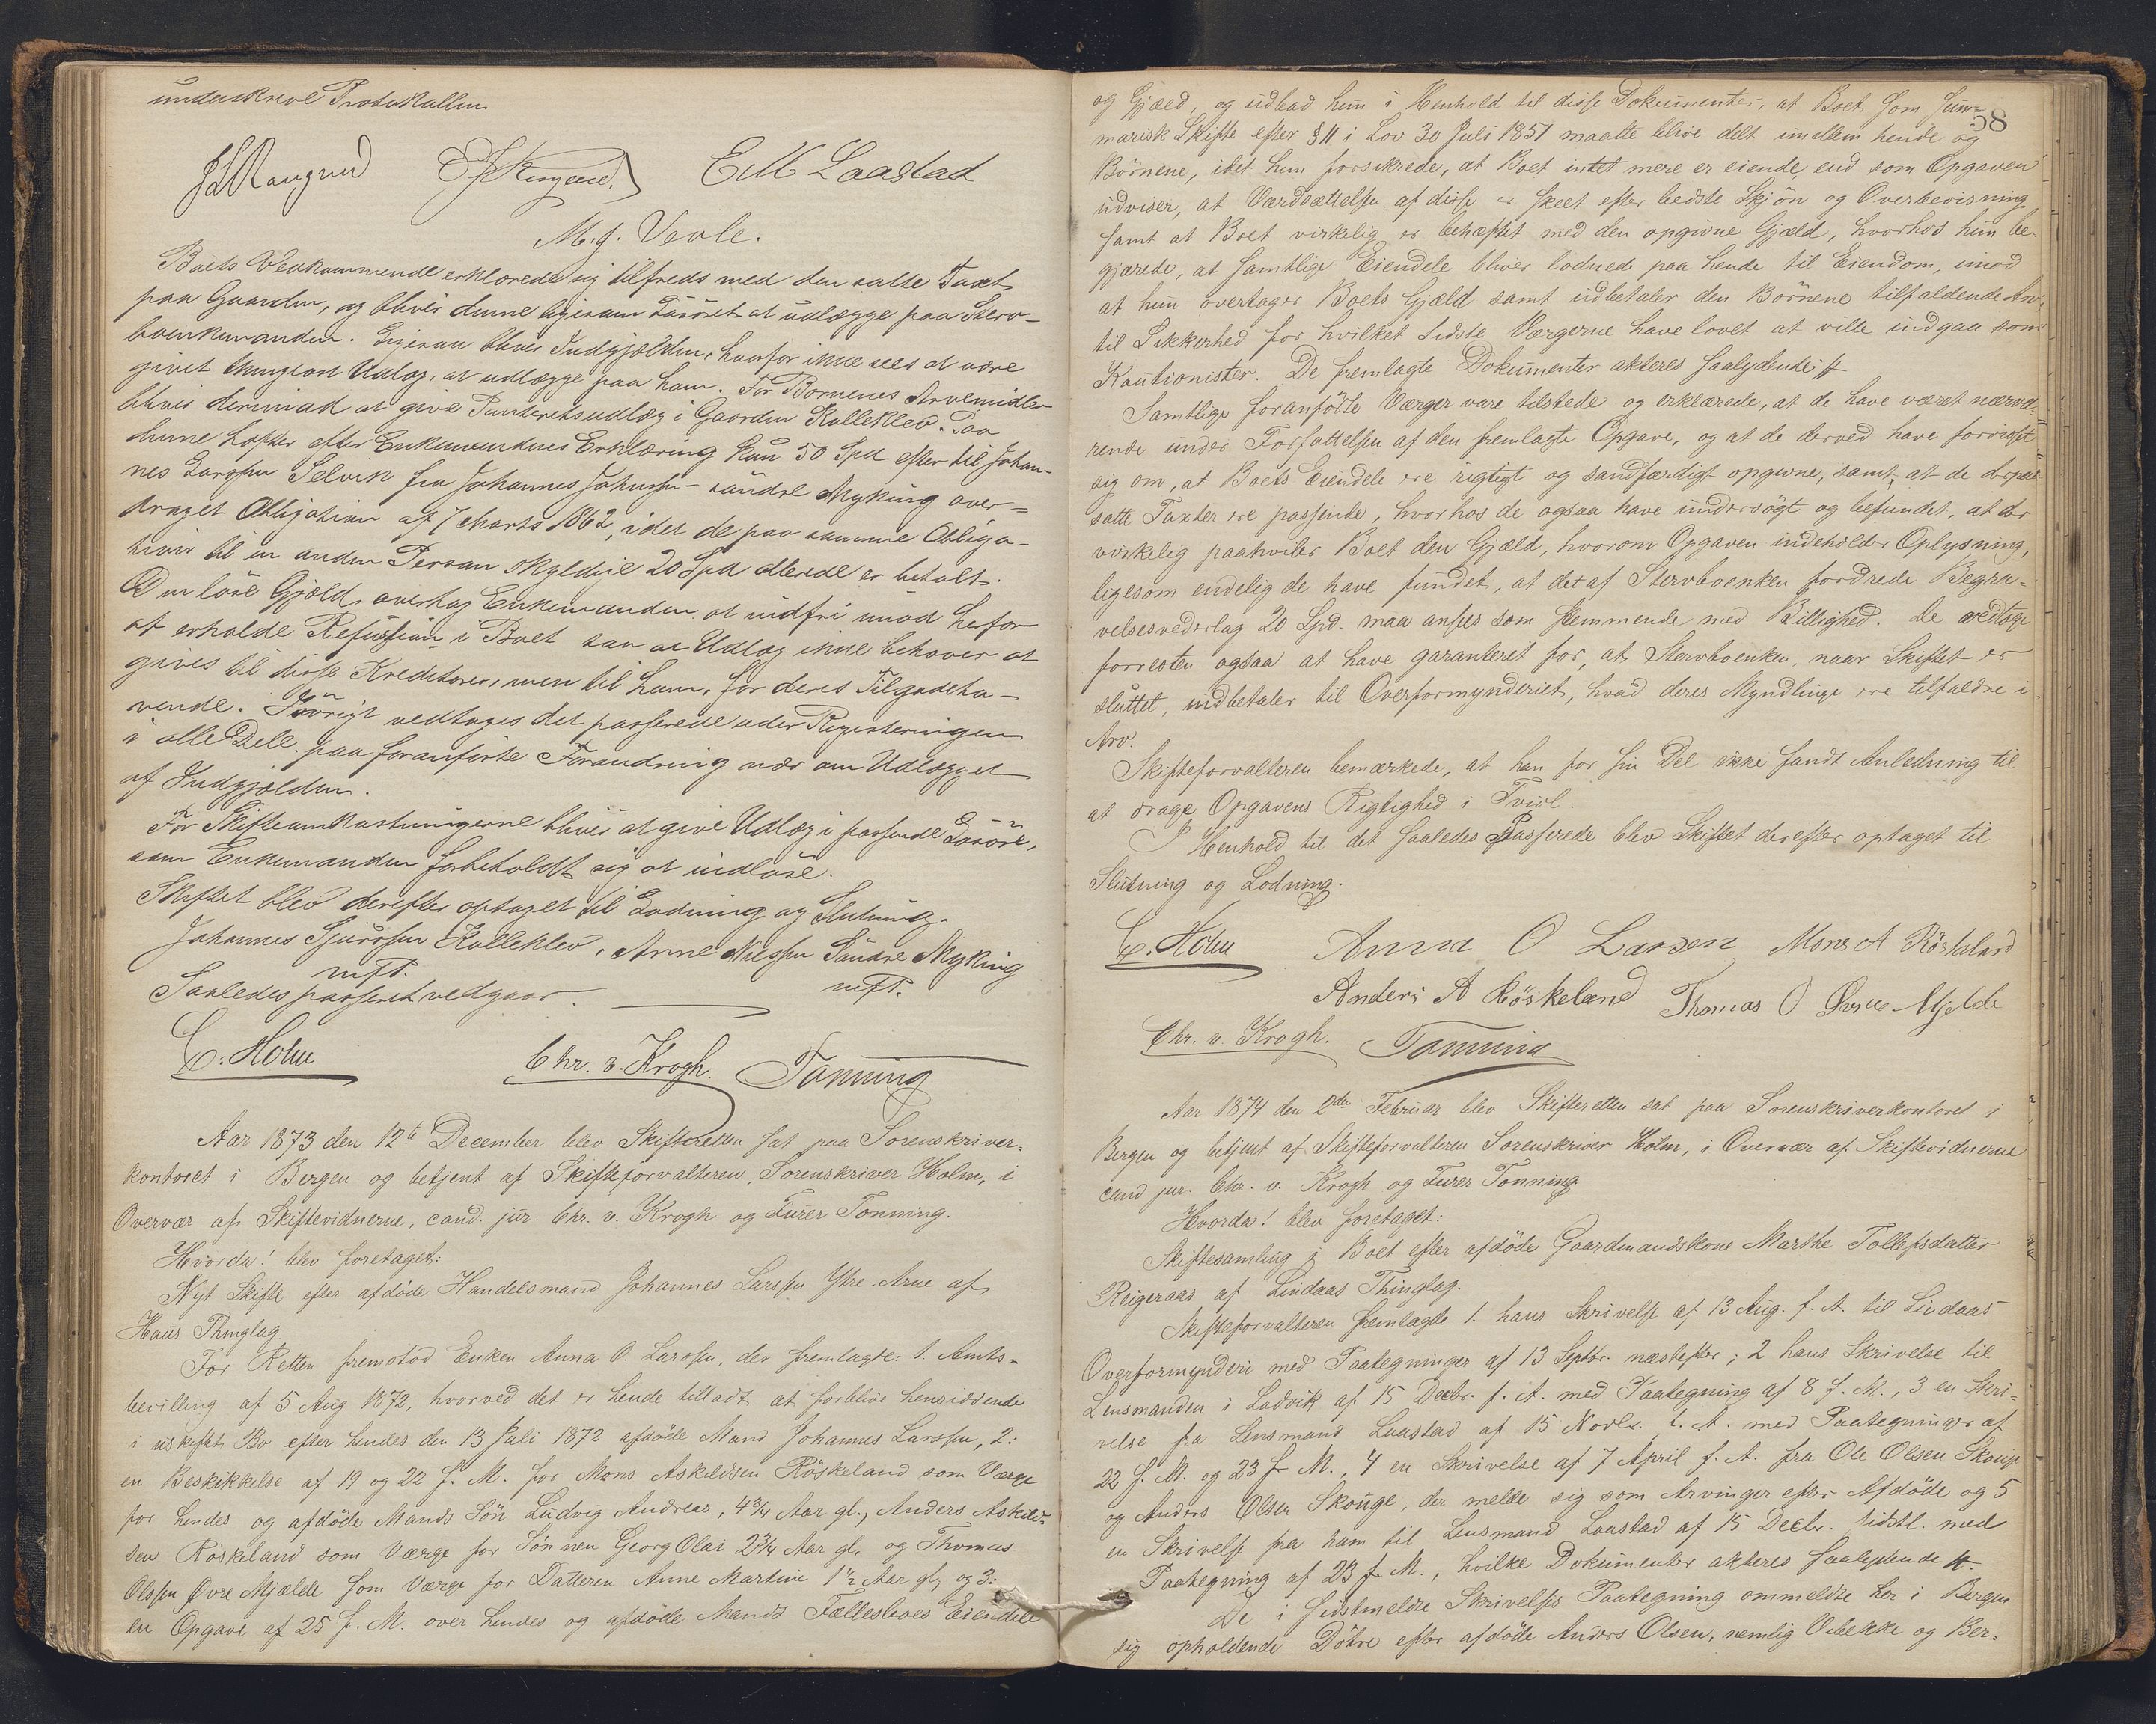 underskrevet Protokollen
E M Laastad
M. J. Vevle.
Boets Vedkommende erklærede sig tilfreds med den satte Taxt
paa Gaarden, og bliver denne ligesom Løsøret at udlægge paa Sterv-
boenkemanden. Ligesaa bliver Indgjælden, hvorfor ikke sees at være
givet Udlæg, at udlægge paa ham. For Børnenes Arvemidler
bliver derimod at give Panteretsudlæg i Gaarden Kalleklev. Paa
denne hefter efter Enkemandens Erklæring kun 50 Spd efter til Johan-
nes Larssen Selvik fra Johannes Johnssen søndre Myking over-
draget Obligation af 7 Marts 1862, idet de paa samme Obliga-
tion til en anden Person skyldige 20 Spd allerede er betalt.
Den løse Gjæld overtog Enkemanden at indfri imod herfor
at erholde Refusion i Boet saa at Udlæg ikke behøver at
gives til disse Kreditorer, men til ham, for deres Tilgodeha-
vende. Iøvrigt vedtoges det passerede under Registeringen
i alle Dele paa foranførte Forandring nær om Udlægget
af Indgjælden.
For Skifteomkostningerne bliver at give Udlæg i passende Løsøre,
som Enkemanden forbeholdt sig at indløse.
Skiftet blev derefter optaget til Lodning og Slutning.
Johannes Sjurssen Kalleklev, Arne Nilssen Søndre Myking
mfP. mfP.
Saaledes passeret vedgaar.
C. Holm Chr. v. Krogh. Tonning
Aar 1873 den 12te December blev Skifteretten sat paa Sorenskriver-
kontoret i Bergen og betjent af Skifteforvalteren, Sorenskriver Holm, i
Overvær af Skiftevidnerne, cand. jur. Chr. v. Krogh og Furer Tonning.
Hvorda! blev foretaget:
Nyt Skifte efter afdøde Handelsmand Johannes Larssen Ytre-Arne af
Haus Thinglag
For Retten fremstod Enken Anna O. Larssen, der fremlagde: 1. Amts-
bevilling af 5 Aug 1872, hvorved det er hende tilladt at forblive hensiddende
i uskiftet Bo efter hendes den 13 Juli 1872 afdøde Mand Johannes Larssen, 2:
en Beskikkelse af 19 og 22 f. M. for Mons Askildsen Röskeland som Værge
for hendes og afdøde Mands Søn Ludvig Andreas, 4 3/4 Aar gl., Anders Askild-
sen Röskeland som Værge for Sønnen Georg Olai 2 3/4 Aar gl. og Thomas
Olssen Øvre Mjælde som Værge for Datteren Anne Martine 1 1/2 Aar gl, og 3:
en Opgave af 25 f. M. over hendes og afdøde Mands Fællesboes Eiendele
58
og Gjæld, og udbad hun i Henhold til disse Dokumenter, at Boet som Sum-
marisk Skifte efter § 11 i Lov 30 Juli 1851 maatte blive delt imellem hende og
Børnene, idet hun forsikrede, at Boet intet mere er eiende, end som Opgaven
udviser, at Værdsættelsen af disse er skeet efter bedste Skjøn og Overbevisning
samt at Boet virkelig er behæftet med den opgivne Gjæld, hvorhos hun be-
gjærede, at samtlige Eiendele bliver lodnede paa hende til Eiendom, imod
at hun overtager Boets Gjæld samt udbetaler den Børnene tilfaldende Arv,
til Sikkerhed for hvilket sidste Værgerne have lovet at ville indgaa som
Kautionister. De fremlagte Dokumenter akteres saalydende #
Samtlige foranførte Værger vare tilstede og erklærede, at de have været nærvæ-
rende under Forfattelsen af den fremlagte Opgave, og at de derved have forvisset
sig om, at Boets Eiendele ere rigtigt og sandfærdigt opgivne, samt at de derpaa
satte Taxter ere passende, hvorhos de ogsaa have undersøgt og befundet, at der
virkelig paahviler Boet den Gjæld, hvorom Opgaven indeholder Oplysning,
ligesom endelig de have fundet, at det af Stervboenken fordrede Begra-
velsesvederlag 20 Spd. maa ansees som stemmende med Billighed. De vedtoge
forresten ogsaa at have garanteret for, at Stervboenken, naar Skiftet er
sluttet, indbetaler til Overformynderiet, hvad deres Myndlinge ere tilfaldne i
Arv.
Skifteforvalteren bemærkede, at han for sin Del ikke fandt Anledning til
at drage Opgavens Rigtighed i Tvivl.
I Henhold til det saaledes Passerede blev Skiftet derefter optaget til
Slutning og Lodning.
C. Holm Anna O Larsen Mons A Röskeland
Anders A Röskeland Thomas O Øvre Mjelde
Chr. v. Krogh. Tonning
Aar 1874 den 2den Februar blev Skifteretten sat paa Sorenskriverkontoret i
Bergen og betjent af Skifteforvalteren Sorenskriver Holm, i Overvær af Skiftevidnerne
cand jur. Chr. v. Krogh og Furer Tonning
Hvorda! blev foretaget:
Skiftesamling i Boet efter afdøde Gaardmandskone Marthe Tollefsdatter
Reigeraas af Lindaas Thinglag.
Skifteforvalteren fremlagde 1. hans Skrivelse af 13 Aug. f. A. til Lindaas
Overformynderi med Paategninger af 13 Septbr. næstefter; 2 hans Skrivelse til
Lensmanden i Ladvik af 15 Decbr. f. A. med Paategning af 8 f. M., 3 en Skri-
velse fra Lensmand Laastad af 15 Novbr. f. A. med Paategninger af
22 f. M. og 23 f. M., 4 en Skrivelse af 7 April f. A. fra Ole Olsen Skouge
og Anders Olsen Skouge, der melde sig som Arvinger efter Afdøde og 5
en Skrivelse fra ham til Lensmand Laastad af 15 Decbr. sidstl. med
Paategning af 23 f. M., hvilke Dokumenter akteres saalydende #.
De i sidstmeldte Skrivelses Paategning ommeldte her i Bergen
sig opholdende Døtre efter afdøde Anders Olsen, nemlig Vibekke og Ber-